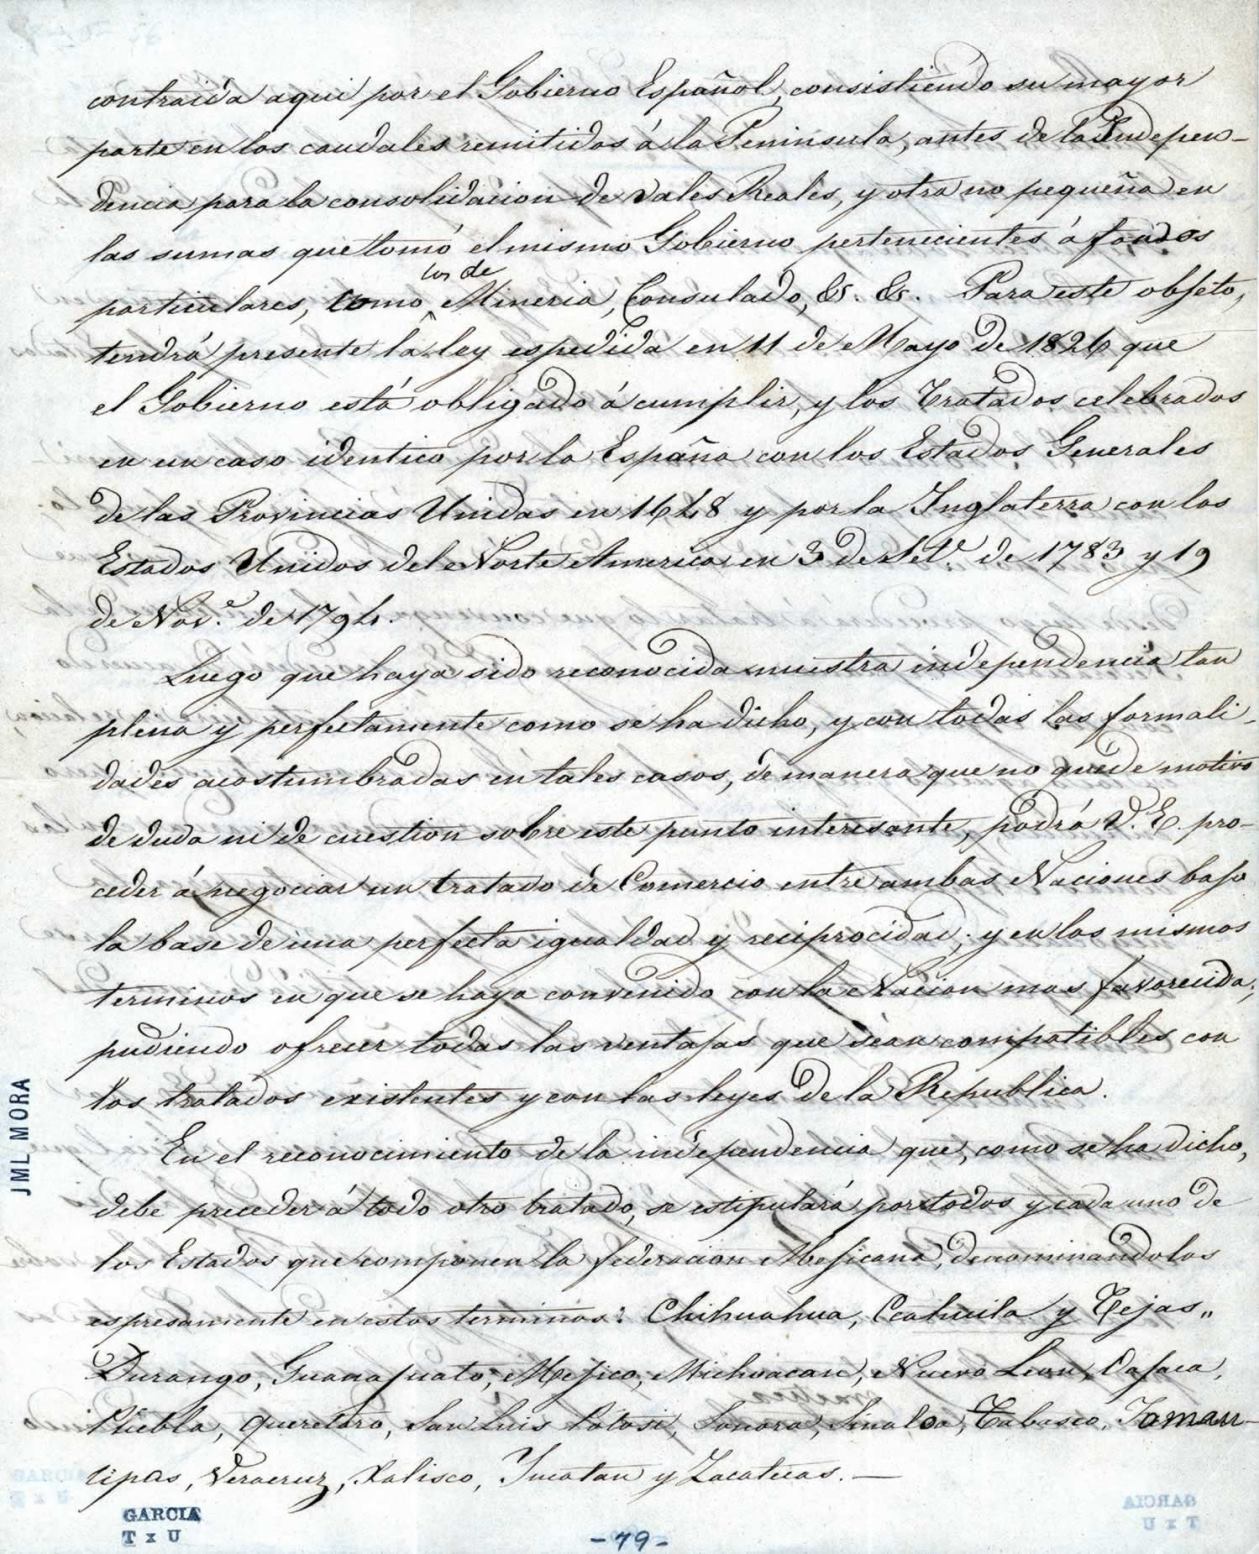 contraida aqui por el Gobierno Español, consistiendo su mayor
parte en los caudales remitidos á la Peninsula, antes de la Indepen-
dencia para la consolidacion de vales Reales, y otra no pequeña en
las sumas que tomó el mismo Gobierno pertenecientes á fondos
los de
particulares, como Mineria, Consulado, &. &. Para este objeto,
tendrá presente la ley espedida en 11 de Mayo de 1826 que
el Gobierno está obligado á cumplir, y los Tratados celebrados
en un caso identico por la España con los Estados Generales
de las Provincias Unidas en 1648 y por la Inglaterra con los
Estados Unidos del Norte America en 3 de Set.e de 1783 y 19
de Nov.e de 1794.
Luego que haya sido reconocida nuestra independencia tan
plena y perfectamente como se ha dicho, y con todas las formali
dades acostumbradas en tales casos, de manera que no quede motivo
de duda ni de cuestion sobre este punto interesante, podrá V. E. pro-
ceder á negociar un tratado de Comercio entre ambas Naciones bajo
la base de una perfecta igualdad y reciprocidad; y en los mismos
terminos en que se haya convenido con la Nacion mas favorecida;
pudiendo ofrecer todas las ventajas que sean compatibles con
los tratados existentes y con las leyes de la Republica.
En el reconocimiento de la independencia que, como se ha dicho,
debe preceder á todo otro tratado, se estipulará por todos y cada uno de
los Estados que componen la federacion Mejicana, denominandolos
espresamente en estos terminos: Chihuahua, Coahuila y Tejas,,
Durango, Guanajuato, Mejico, Michoacan, Nuevo Leon, Oajaca,
Puebla, Queretaro, San Luis Potosi, Sonora, Sinaloa, Tabasco, Tamau-
lipas, Veracruz, Xalisco, Yucatan y Zacatecas. —
JML MORA
GARCIA
T x U
-79-